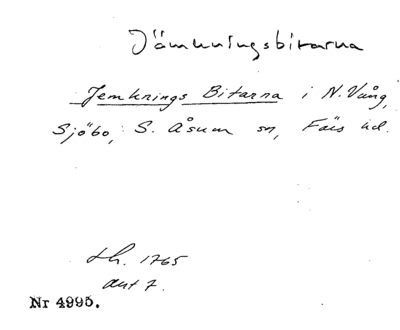 Jämkningsbitarna
Jemknings Bitarna i N. Vång,
Sjöbo, S. Åsum sn, Färs hd.
Lh. 1765
akt 7.
Nr 4995.